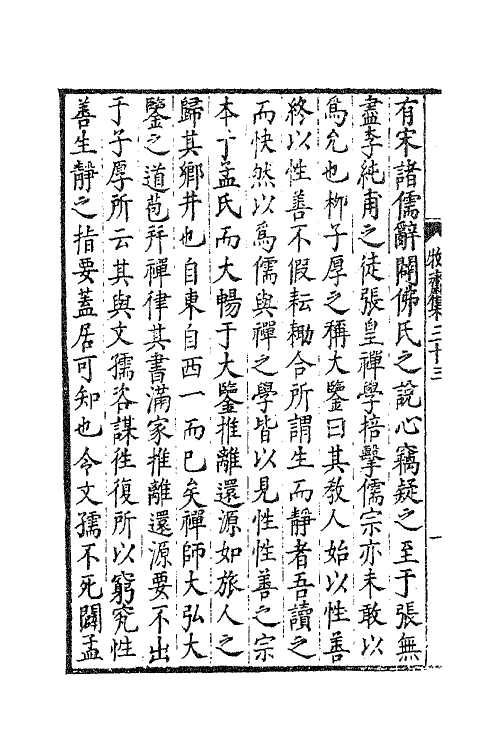 有宋諸儒辭闢佛氏之說心竊疑之至于張無
盡李純甫之徒張皇禪學掊擊儒宗亦未敢以
為允也柳子厚之稱大鑒曰其教人始以性善
終以性善不假耘耡合所謂生而靜者吾讀之
而快然以為儒與禪之學皆以見性性善之宗
本于孟氏而大暢于大鑒推離還源如旅人之
歸其鄉井也自東自西一而已矣禪師大弘大
鑒之道苞并禪律其書滿家推離還源要不出
于子厚所云其與文孺咨謀往復所以窮究性
善生靜之指要蓋居可知也令文孺不死闢孟
牧齋集三十三
一